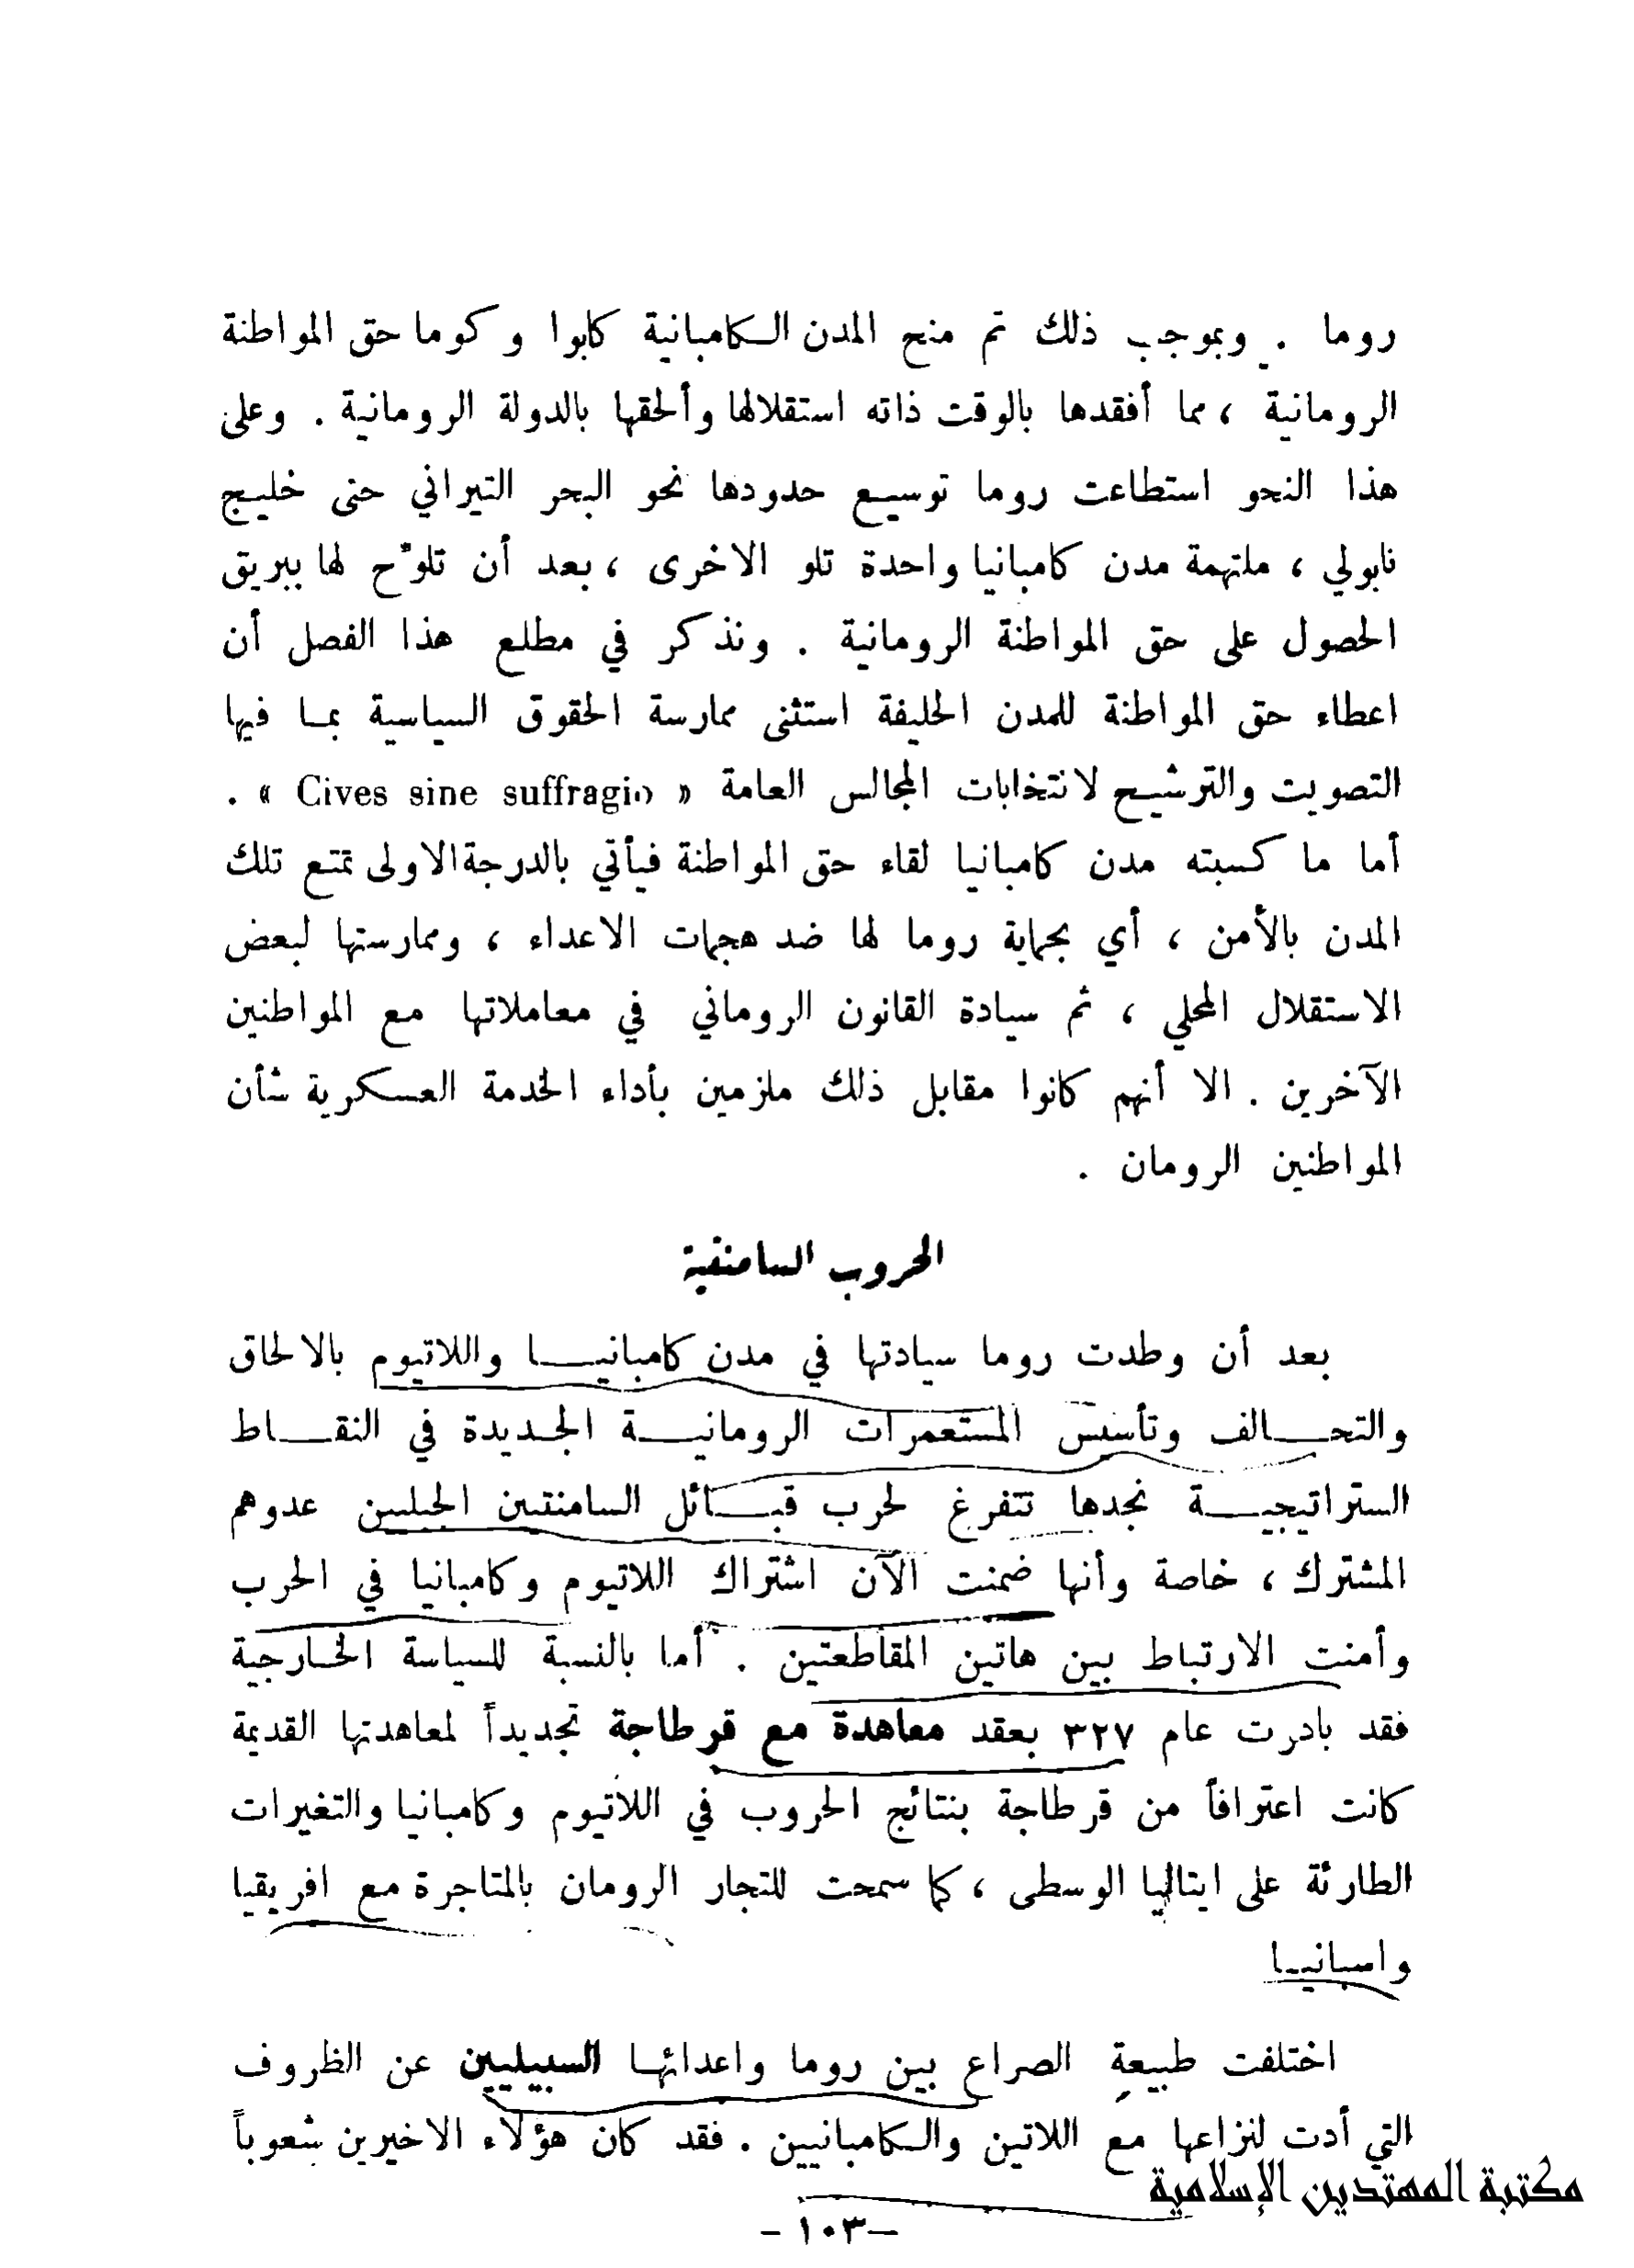 روما . وبموجب ذلك تم منح المدن الكامبانية كابوا وكوما حق المواطنة
الرومانية ، مما أفقدها بالوقت ذاته استقلالها وألحقها بالدولة الرومانية . وعلى
هذا النحو استطاعت روما توسيع حدودها نحو البحر التيراني حتى خليج
نابولي ، ملتهمة مدن كامبانيا واحدة تلو الاخرى ، بعد أن تلوّح لها ببريق
الحصول على حق المواطنة الرومانية . ونذكر في مطلع هذا الفصل أن
اعطاء حق المواطنة للمدن الحليفة استثنى ممارسة الحقوق السياسية بما فيها
التصويت والترشيح لانتخابات المجالس العامة « Cives sine suffragio » .
أما ما كسبته مدن كامبانيا لقاء حق المواطنة فيأتي بالدرجة الاولى تمتع تلك
المدن بالأمن ، أي بحماية روما لها ضد هجمات الاعداء ، وممارستها لبعض
الاستقلال المحلي ، ثم سيادة القانون الروماني في معاملاتها مع المواطنين
الآخرين . الا أنهم كانوا مقابل ذلك ملزمين بأداء الخدمة العسكرية شأن
المواطنين الرومان .
الحروب السامنقية
بعد أن وطدت روما سيادتها في مدن كامبانيا واللاتيوم بالالحاق
والتحالف وتأسيس المستعمرات الرومانية الجديدة في النقاط
الستراتيجية نجدها تتفرغ لحرب قبائل السامنتين الجبليين عدوهم
المشترك ، خاصة وأنها ضمنت الآن اشتراك اللاتيوم وكامبانيا في الحرب
وأمنت الارتباط بين هاتين المقاطعتين . أما بالنسبة للسياسة الخارجية
فقد بادرت عام ٣٢٧ بعقد معاهدة مع قرطاجة تجديداً لمعاهدتها القديمة
كانت اعترافاً من قرطاجة بنتائج الحروب في اللاتيوم وكامبانيا والتغيرات
الطارئة على ايتاليا الوسطى ، كما سمحت للتجار الرومان بالمتاجرة مع افريقيا
واسبانيا
اختلفت طبيعة الصراع بين روما واعدائها السبيليين عن الظروف
التي أدت لنزاعها مع اللاتين والكامبانيين . فقد كان هؤلاء الاخيرين شعوباً
مكتبة المهتدين الإسلامية
- ١٠٣ -